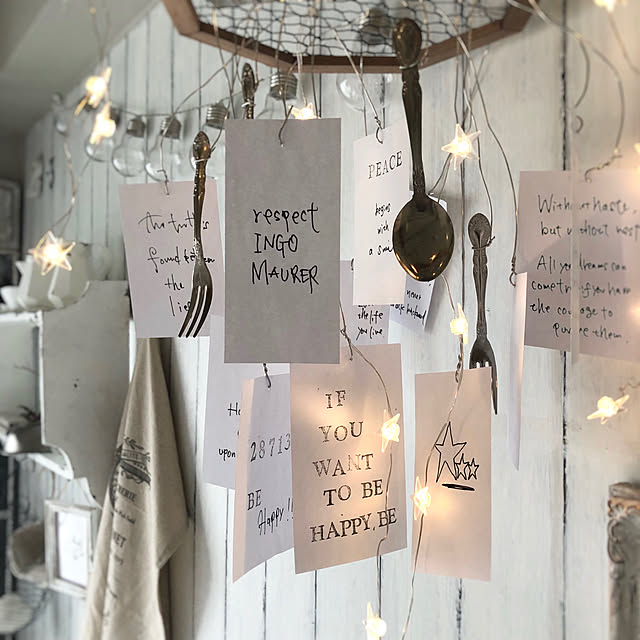 the truth is
found between
the
lies
respect
INGO
MAURER
PEACE
begins
with
a
the life
you
live
Without haste,
but without rest
All your dreams can
come true if you have
the courage to
pursue them.
upon
28713
BE
Happy!!
IF
YOU
WANT
TO BE
HAPPY, BE